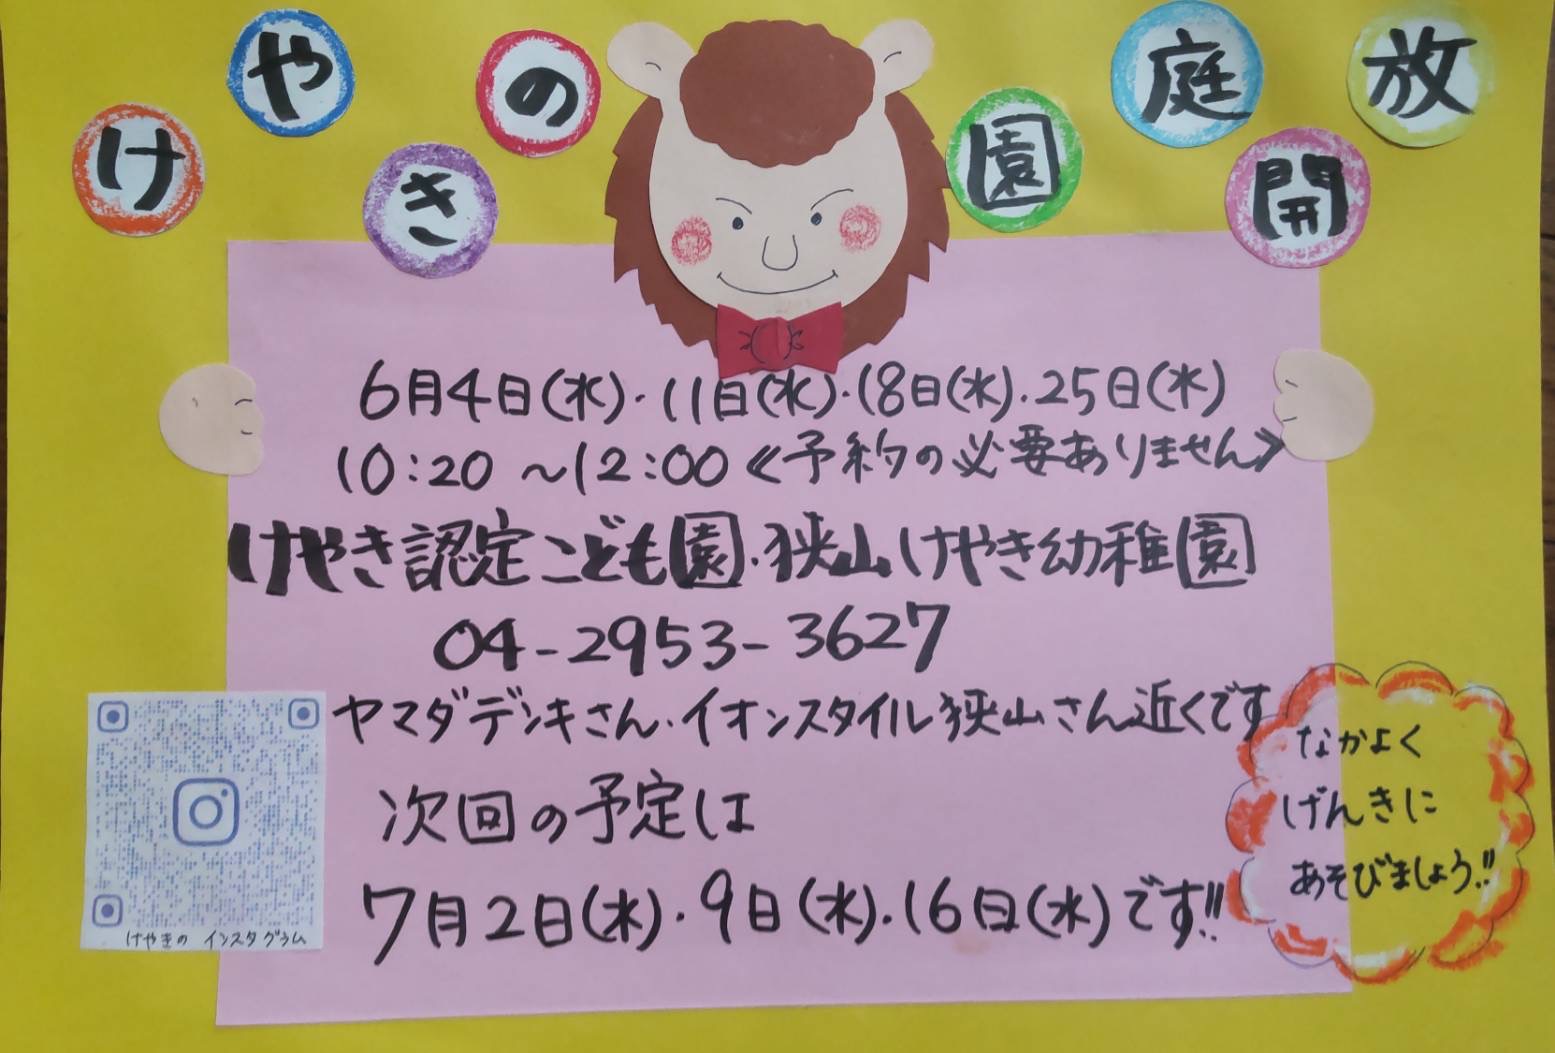 けやきの園庭開放
6月4日(水)・11日(水)・18日(水)・25日(水)
10:20 〜12:00 《予約の必要ありません》
けやき認定こども園・狭山けやき幼稚園
04-2953-3627
ヤマダデンキさん・イオンスタイル狭山さん近くです
次回の予定は
7月2日(水)・9日(水)・16日(水)です!!
なかよく
げんきに
あそびましょう!!
けやきの インスタグラム